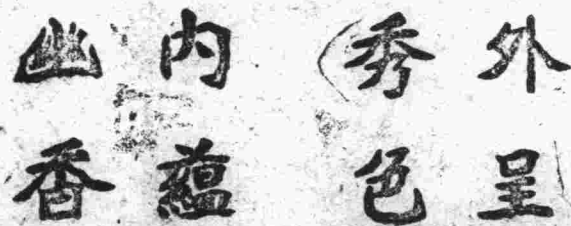 外呈
秀色
内蕴
幽香